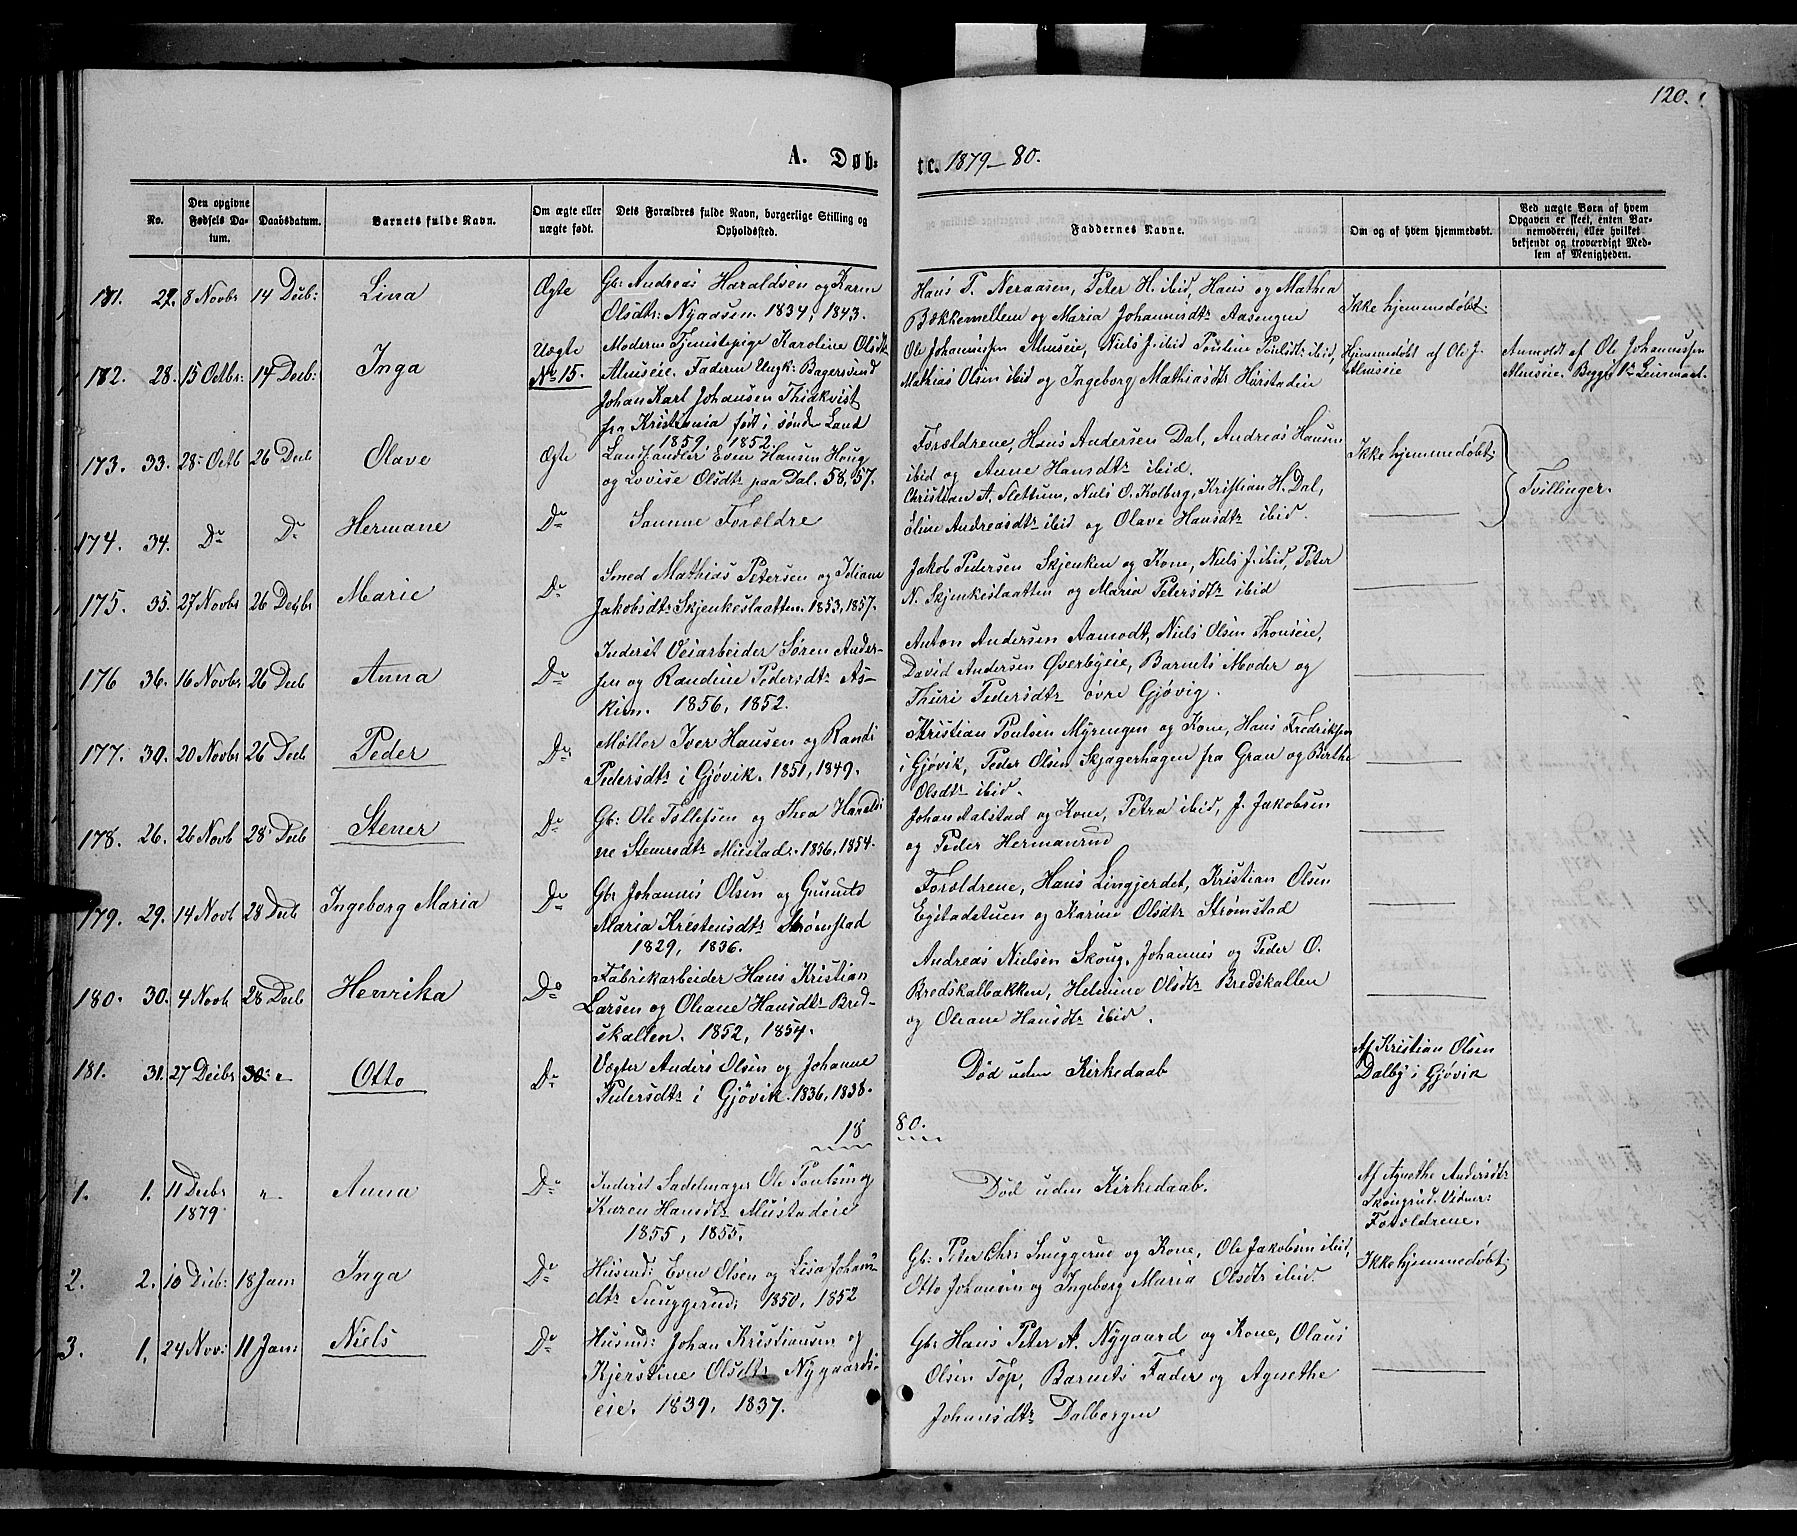 120.
A. Døb-
te. 1879-80.
No.
Den opgivne Fødsels Da-
tum.
Daabsdatum.
Barnets fulde Navn.
Om ægte eller
uægte født.
Dets Forældres fulde Navn, borgerlige Stilling og
Opholdssted.
Faddernes Navne.
Om og af hvem hjemmedøbt.
Ved uægte Børn af hvem
Opgaven er skeet, enten Bar-
nemoderen, eller hvilket
bekjendt og troværdigt Med-
lem af Menigheden.
171. 27. 8 Novbr 14 Decb: Lina Ægte
Gb: Andreas Haraldsen og Karen
Olsdtr: Nyaasen. 1834, 1843.
Hans T. Neraasen, Peter H. ibid, Hans og Mathea
Bækkemellem og Maria Johannesdtr Aasengen
Ikke hjemmedøbt.
172. 28. 15 Octbr: 14 Decb: Inga Uægte
No 15.
Moderen Tjenestepige Karoline Olsdtr
Almseie. Faderen Ungk: Bagersvend
Johan Karl Johansen Thidkvist
fra Kristiania født i søndr Land
1859, 1852.
Ole Johannessen Almseie, Niels J. ibid Pouline Poulsdtr ibid,
Mathias Olsen ibid og Ingeborg Mathiasdtr Hørstadeie
Hjemmedøbt af Ole J.
Almseie
Anmeldt af Ole Johannessen
Almseie.
173. 33. 28 Octb 26 Decb Olave Ægte
Landhandler Even Hansen Houg
og Lovise Olsdtr paa Dal. 58, 57.
Forældrene, Hans Andersen Dal, Andreas Hansen
ibid og Anne Hansdtr ibid.
Ikke hjemmedøbt.
Tvillinger.
174. 34. Do Do Hermane Do
Samme Forældre
Christian A. Slettum, Niels O. Kolberg, Kristian H. Dal,
Oline Andreasdtr ibid og Olave Hansdtr ibid.
175. 35. 27 Novbr 26 Decbr Marie Do
Smed Mathias Petersen og Juliane
Jakobsdtr Skjenkeslaatten. 1853, 1857.
Jakob Pedersen Skjenken og Kone, Niels J. ibid, Peter
N. Skjenkeslaatten og Maria Petersdtr ibid
176 36. 16 Novbr 26 Decb Anna Do
Inderst Veiarbeider Søren Ander-
sen og Randine Pedersdtr As-
kim. 1856, 1852.
Anton Andersen Aamodt, Niels Olsen Thonseie,
David Andersen Øverbyeie, Barnets Moder og
Thuri Pedersdtr øvre Gjøvig.
177. 30. 20 Novbr 26 Decb Peder Do
Møller Iver Hansen og Randi
Pedersdtr i Gjøvik. 1851, 1849.
Kristian Poulsen Myrengen og Kone, Hans Fredriksen
i Gjøvik, Peder Olsen Skjagerhagen fra Gran og Birthe
Olsdtr ibid.
178. 26. 26 Novb 28 Decb Stener Do
Gb: Ole Tollefsen og Thea Haraldi
ne Stenersdtr Mustad. 1856, 1854.
Johan Aalstad og Kone, Petra ibid, J. Jakobsen
og Peder Hermanrud
179. 29. 14 Novb 28 Decb Ingeborg Maria Do
Gbr Johannes Olsen og Gunild
Maria Kristensdtr Strømstad
1829, 1836.
Forældrene, Hans Lingjerdet, Kristian Olsen
Egstadstuen og Karine Olsdtr Strømstad
180. 30. 4 Novb 28 Decb Henrika Do
Fabrikarbeider Hans Kristian
Larsen og Oleane Hansdtr Bred-
skallen. 1852, 1854.
Andreas Nielsen Skoug, Johannes og Peder O.
Bredskalbakken, Helmine Olsdtr Bredskallen
og Oleane Hansdtr ibid.
181. 31. 27 Decbr Otto Do
Vægter Anders Olsen og Johanne
Pedersdtr i Gjøvik. 1836, 1838.
Død uden Kirkedaab
Af Kristian Olsen
Dalby i Gjøvik
18 80.
1. 1. 11 Decbr
1879 " Anna Do
Inderst Sadelmager Ole Poulsen og
Karen Hansdtr Mustadeie
1855, 1855.
Død uden Kirkedaab.
Af Agnethe Andersdtr
Skougrud. Vidner:
Forældrene.
2. 2. 10 Decb: 18 Jan: Inga Do
Husmd: Even Olsen og Lisa Johans-
dtr Snuggerud: 1850, 1852
Gb: Peter Chr: Snuggerud og Kone, Ole Jakobsen ibid,
Otto Johansen og Ingeborg Maria Olsdtr ibid.
Ikke hjemmedøbt.
3. 1. 24 Nov: 11 Jan: Niels Do
Husmd: Johan Kristiansen og
Kjerstine Olsdtr Nygaards-
eie. 1839, 1837.
Gb: Hans Peter A. Nygaard og Kone, Olaus
Olsen Top, Barnets Fader og Agnethe
Johansdtr Dalborgen